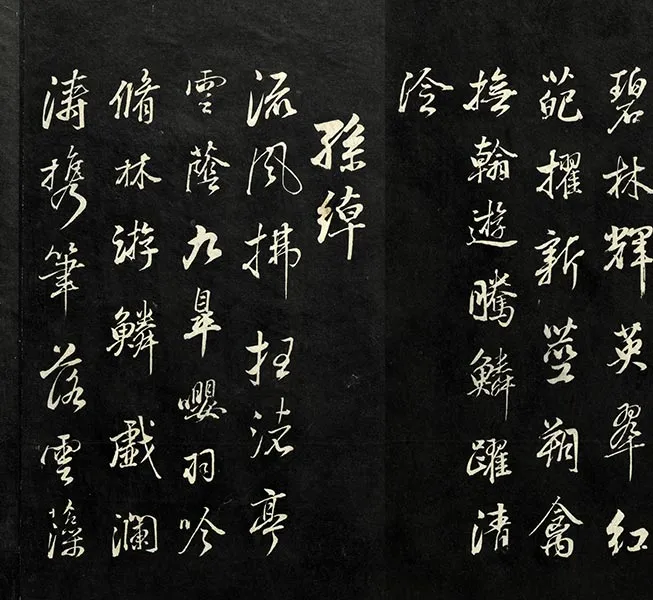 碧林輝英翠紅
葩擢新莖翔禽
撫翰遊騰鱗躍清
泠
孫綽
流風拂枉渚亭
雲蔭九皋嚶羽吟
脩林游鱗戲瀾
濤攜筆落雲藻